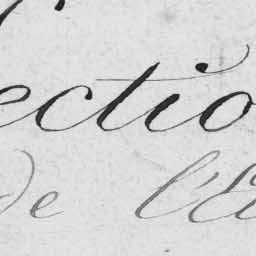 ectio
de l'E